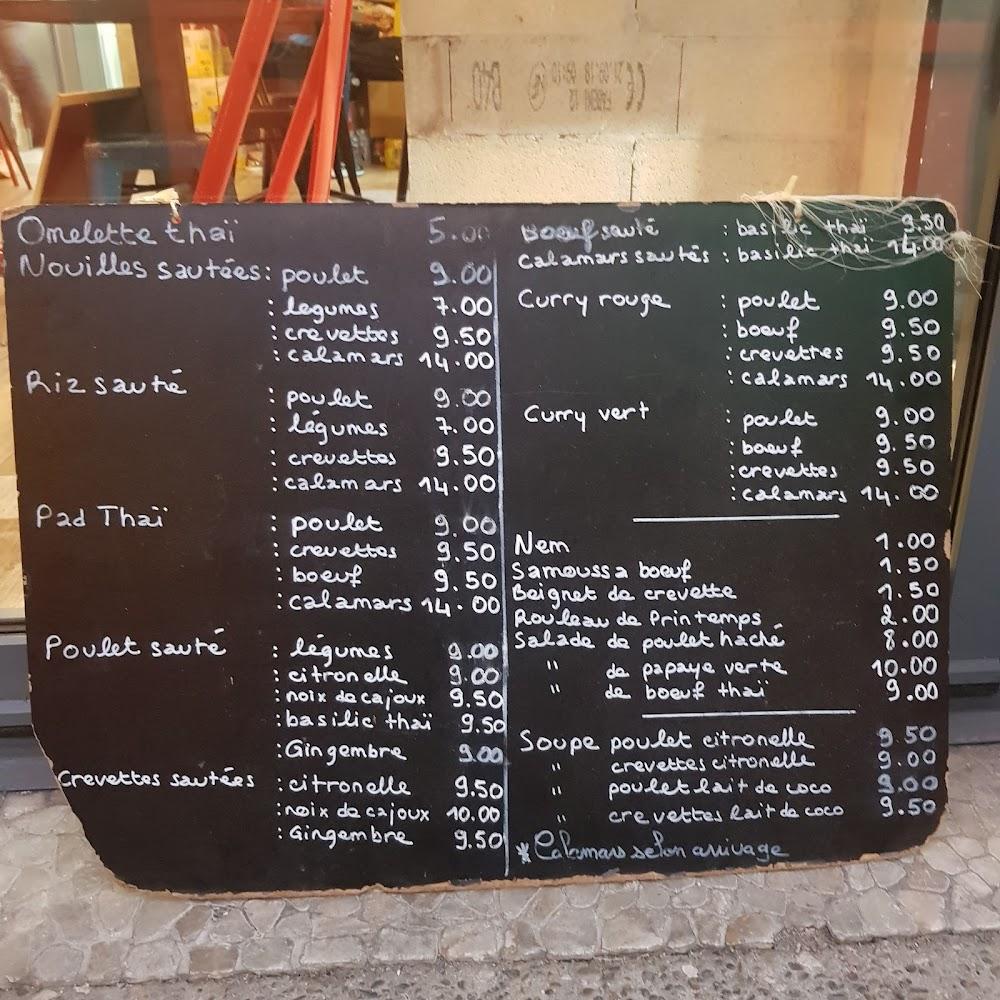 Omelette thaï 5.00
Nouilles sautées : poulet 9.00
: légumes 7.00
: crevettes 9.50
: calamars 14.00
Riz sauté : poulet 9.00
: légumes 7.00
: crevettes 9.50
: calamars 14.00
Pad Thaï : poulet 9.00
: crevettes 9.50
: boeuf 9.50
: calamars 14.00
Poulet sauté : légumes 9.00
: citronelle 9.00
: noix de cajoux 9.50
: basilic thaï 9.50
: Gingembre 9.00
Crevettes sautées : citronelle 9.50
: noix de cajoux 10.00
: Gingembre 9.50
Boeuf sauté : basilic thaï 9.50
calamars sautés : basilic thaï 14.00
Curry rouge : poulet 9.00
: boeuf 9.50
: crevettes 9.50
: calamars 14.00
Curry vert : poulet 9.00
: boeuf 9.50
: crevettes 9.50
: calamars 14.00
Nem 1.00
Samoussa boeuf 1.50
Beignet de crevette 1.50
Rouleau de Printemps 2.00
Salade de poulet haché 8.00
" de papaye verte 10.00
" de boeuf thaï 9.00
Soupe poulet citronelle 9.50
" crevettes citronelle 9.00
" poulet lait de coco 9.00
" crevettes lait de coco 9.50
* Calamars selon arrivage